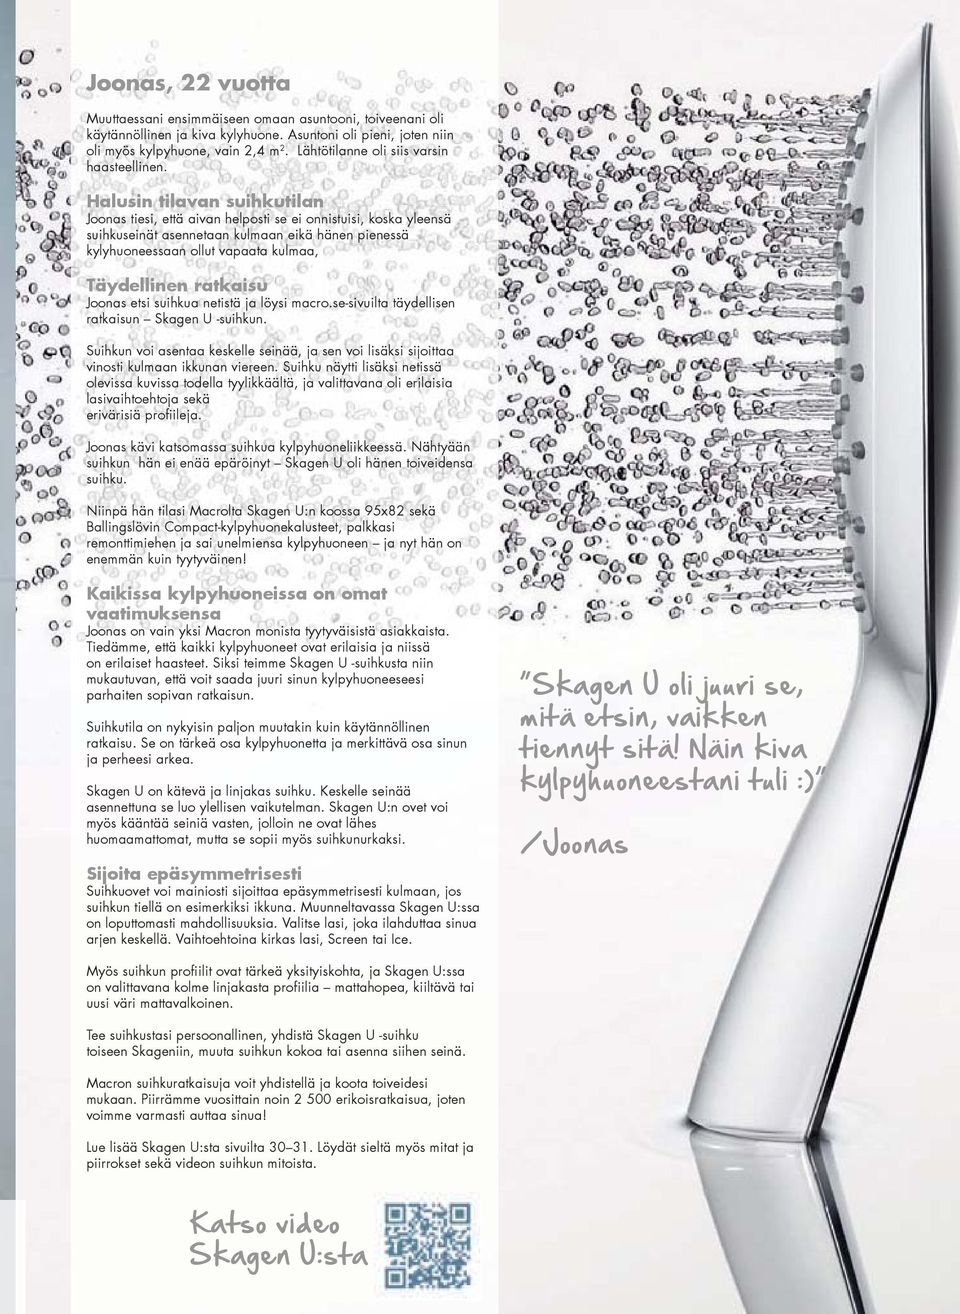 Joonas, 22 vuotta
Muuttaessani ensimmäiseen omaan asuntooni, toiveenani oli
käytännöllinen ja kiva kylyhuone. Asuntoni oli pieni, joten niin
oli myös kylpyhuone, vain 2,4 m². Lähtötilanne oli siis varsin
haasteellinen.
Halusin tilavan suihkutilan
Joonas tiesi, että aivan helposti se ei onnistuisi, koska yleensä
suihkuseinät asennetaan kulmaan eikä hänen pienessä
kylyhuoneessaan ollut vapaata kulmaa,
Täydellinen ratkaisu
Joonas etsi suihkua netistä ja löysi macro.se-sivuilta täydellisen
ratkaisun – Skagen U -suihkun.
Suihkun voi asentaa keskelle seinää, ja sen voi lisäksi sijoittaa
vinosti kulmaan ikkunan viereen. Suihku näytti lisäksi netissä
olevissa kuvissa todella tyylikkäältä, ja valittavana oli erilaisia
lasivaihtoehtoja sekä
erivärisiä profiileja.
Joonas kävi katsomassa suihkua kylpyhuoneliikkeessä. Nähtyään
suihkun hän ei enää epäröinyt – Skagen U oli hänen toiveidensa
suihku.
Niinpä hän tilasi Macrolta Skagen U:n koossa 95x82 sekä
Ballingslövin Compact-kylpyhuonekalusteet, palkkasi
remonttimiehen ja sai unelmiensa kylpyhuoneen – ja nyt hän on
enemmän kuin tyytyväinen!
Kaikissa kylpyhuoneissa on omat
vaatimuksensa
Joonas on vain yksi Macron monista tyytyväisistä asiakkaista.
Tiedämme, että kaikki kylpyhuoneet ovat erilaisia ja niissä
on erilaiset haasteet. Siksi teimme Skagen U -suihkusta niin
mukautuvan, että voit saada juuri sinun kylpyhuoneeseesi
parhaiten sopivan ratkaisun.
Suihkutila on nykyisin paljon muutakin kuin käytännöllinen
ratkaisu. Se on tärkeä osa kylpyhuonetta ja merkittävä osa sinun
ja perheesi arkea.
Skagen U on kätevä ja linjakas suihku. Keskelle seinää
asennettuna se luo ylellisen vaikutelman. Skagen U:n ovet voi
myös kääntää seiniä vasten, jolloin ne ovat lähes
huomaamattomat, mutta se sopii myös suihkunurkaksi.
Sijoita epäsymmetrisesti
Suihkuovet voi mainiosti sijoittaa epäsymmetrisesti kulmaan, jos
suihkun tiellä on esimerkiksi ikkuna. Muunneltavassa Skagen U:ssa
on loputtomasti mahdollisuuksia. Valitse lasi, joka ilahduttaa sinua
arjen keskellä. Vaihtoehtoina kirkas lasi, Screen tai Ice.
Myös suihkun profiilit ovat tärkeä yksityiskohta, ja Skagen U:ssa
on valittavana kolme linjakasta profiilia – mattahopea, kiiltävä tai
uusi väri mattavalkoinen.
Tee suihkustasi persoonallinen, yhdistä Skagen U -suihku
toiseen Skageniin, muuta suihkun kokoa tai asenna siihen seinä.
Macron suihkuratkaisuja voit yhdistellä ja koota toiveidesi
mukaan. Piirrämme vuosittain noin 2 500 erikoisratkaisua, joten
voimme varmasti auttaa sinua!
Lue lisää Skagen U:sta sivuilta 30–31. Löydät sieltä myös mitat ja
piirrokset sekä videon suihkun mitoista.
Katso video
Skagen U:sta
"Skagen U oli juuri se,
mitä etsin, vaikken
tiennyt sitä! Näin kiva
kylpyhuoneestani tuli :)"
/Joonas